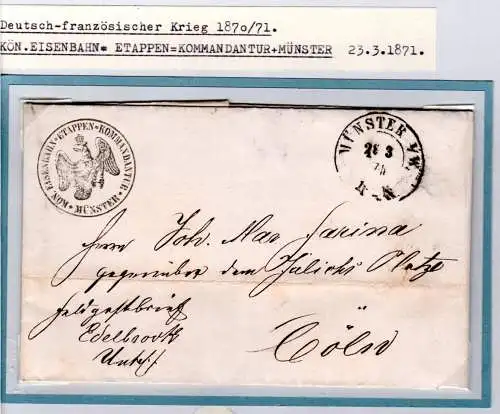 Deutsch-französischer Krieg 1870/71.
KÖN.EISENBAHN* ETAPPEN=KOMMANDANTUR+MÜNSTER 23.3.1871.
KÖN. EISENBAHN-ETAPPEN-KOMMANDANTUR
* MÜNSTER *
MÜNSTER I/W.
3
Herrn Joh. Mar Farina
gegenüber dem Jülichs Platze
Feldpostbrief
Cöln
Edelbrock